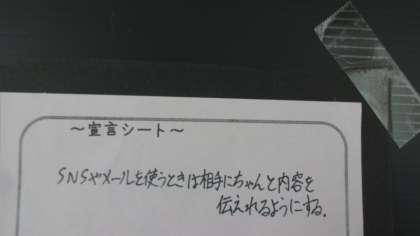 ～宣言シート～
SNSやメールを使うときは相手にちゃんと内容を
伝えれるようにする。